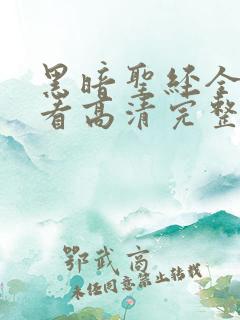 黑暗聖經全
看高清完整
鄂武高
未经同意禁止转载